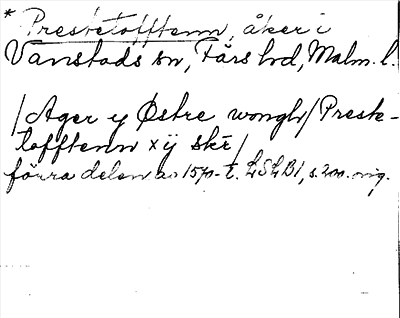 * Prestetofftenn, åker i
Vanstads sn, Färs hd, Malm. l.
/Ager y Østre wongh/Prestetofftenn xij sk̄r/
förra delen av 1570-t. LSLB1, s. 200. orig.